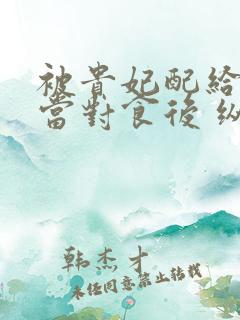 被貴妃配給
當對食後 纵
韩杰才
未经同意禁止转载